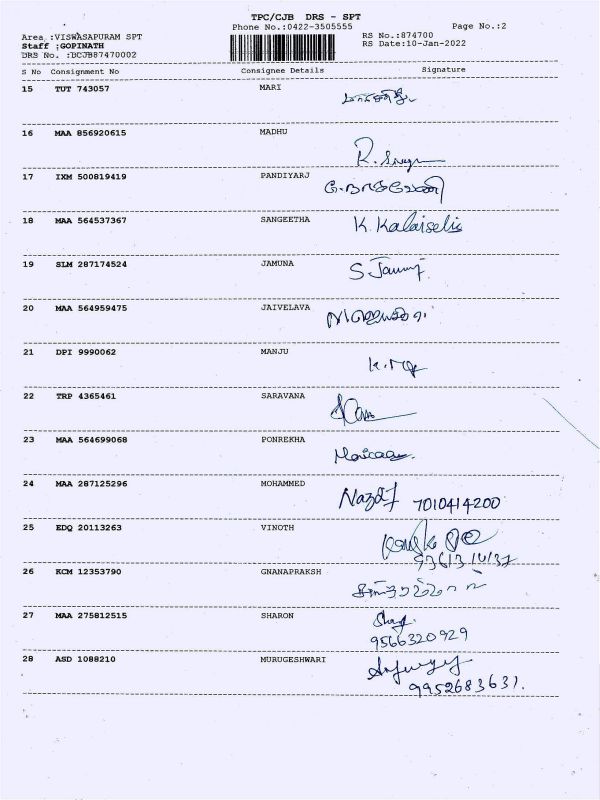 TPC/CJB DRS - SPT
Phone No.:0422-3505555
Page No.:2
Area :VISWASAPURAM SPT
RS No.:874700
Staff :GOPINATH
RS Date:10-Jan-2022
DRS No. :DCJB87470002
S No Consignment No Consignee Details Signature
15 TUT 743057 MARI
16 MAA 856920615 MADHU
17 IXM 500819419 PANDIYARJ
18 MAA 564537367 SANGEETHA K. Kalaiselis
19 SLM 287174524 JAMUNA
20 MAA 564959475 JAIVELAVA
21 DPI 9990062 MANJU
22 TRP 4365461 SARAVANA
23 MAA 564699068 PONREKHA
24 MAA 287125296 MOHAMMED 7010414200
25 EDQ 20113263 VINOTH
26 KCM 12353790 GNANAPRAKSH
27 MAA 275812515 SHARON
9566320929
28 ASD 1088210 MURUGESHWARI
9952683631.